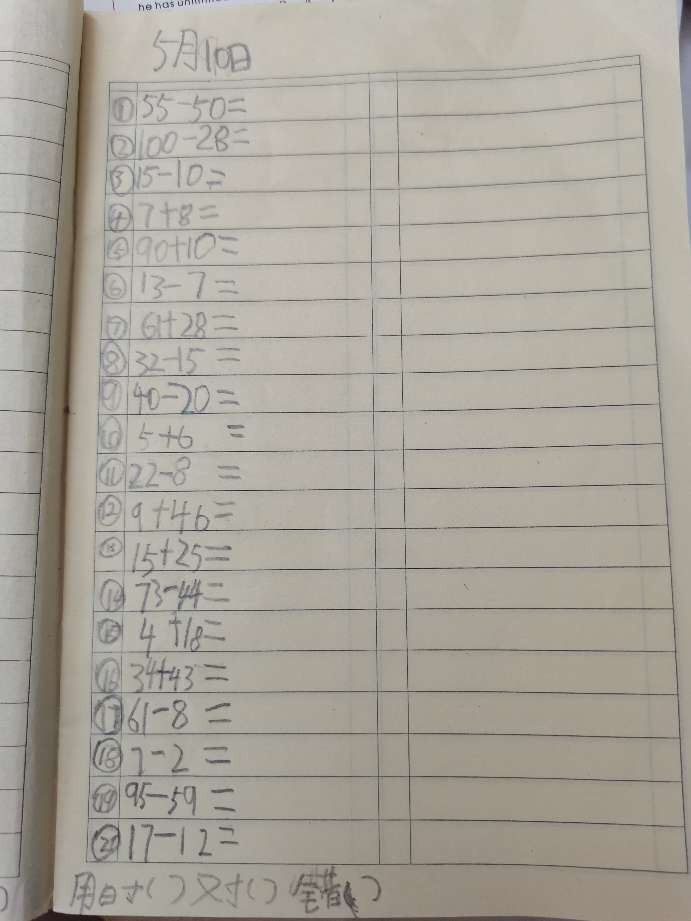 he has
5月10日
① 55-50=
② 100-28=
③ 15-10=
④ 7+8=
⑤ 90+10=
⑥ 13-7=
⑦ 61+28=
⑧ 32-15=
⑨ 40-20=
⑩ 5+6=
⑪ 22-8=
⑫ 9+46=
⑬ 15+25=
⑭ 73-44=
⑮ 4+18=
⑯ 34+43=
⑰ 61-8=
⑱ 7-2=
⑲ 95-59=
⑳ 17-12=
用日寸( ) 又寸( ) 错( )